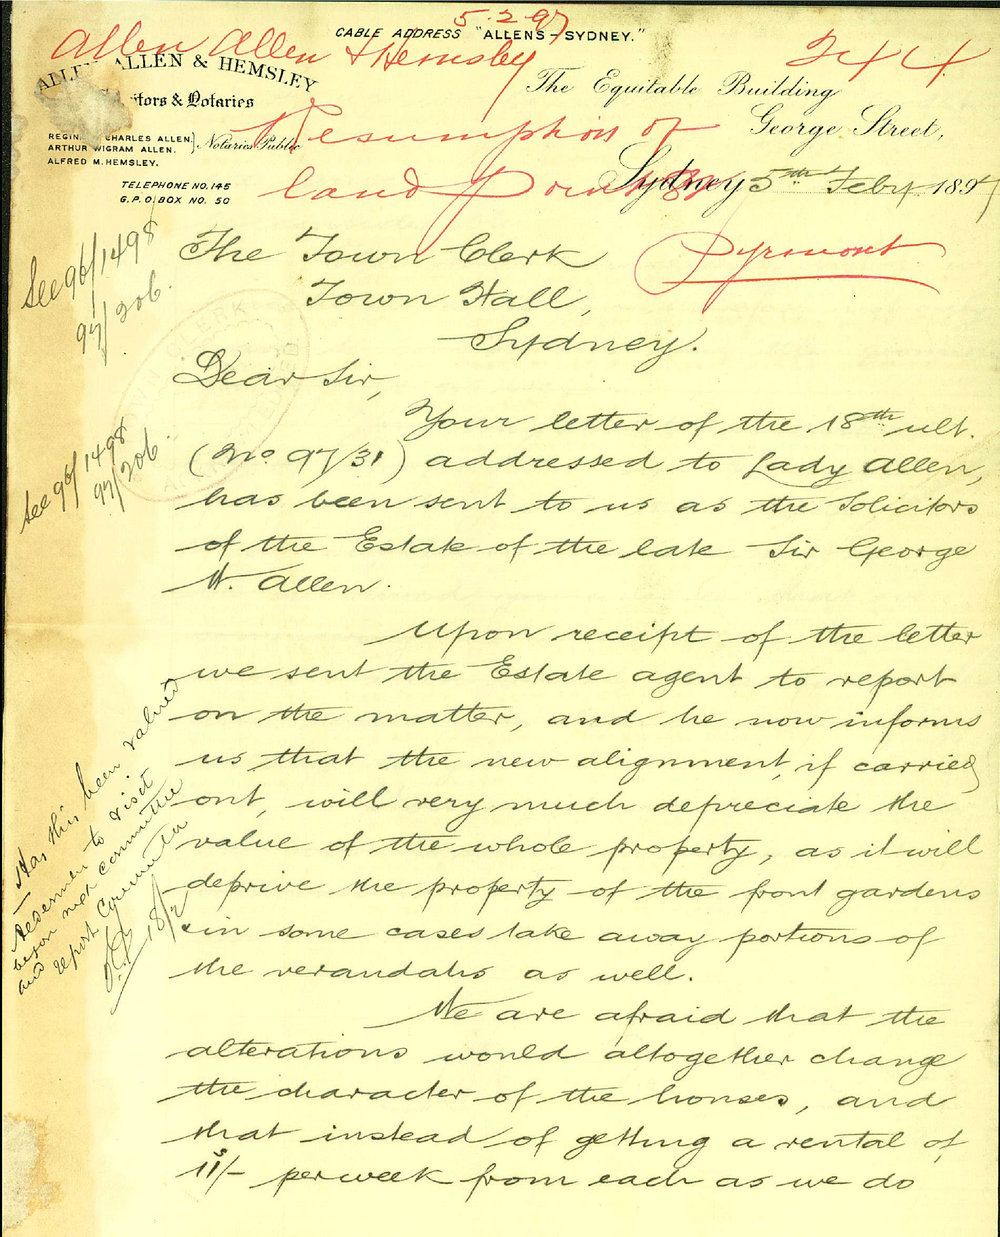 5.2.97
CABLE ADDRESS "ALLENS-SYDNEY."
Allen Allen & Hemsley
244
ALLEN ALLEN & HEMSLEY
tors & Notaries
The Equitable Building
George Street,
REGIN CHARLES ALLEN.
ARTHUR WIGRAM ALLEN.
Notaries Public
ALFRED M. HEMSLEY.
Resumption of
land
Pyrmont
TELEPHONE NO. 145
G.P.O. BOX NO. 50
Sydney 5th Feby 1897
See 96/1498
97/206.
The Town Clerk
Town Hall,
Sydney.
TOWN CLERK
Dear Sir,
Your letter of the 18th ult.
(No 97/31) addressed to Lady Allen,
has been sent to us as the Solicitors
of the Estate of the late Sir George
W. Allen.
See 96/1498
97/206
Upon receipt of the letter
we sent the Estate agent to report
on the matter, and he now informs
us that the new alignment, if carried
out, will very much depreciate the
value of the whole property, as it will
deprive the property of the front gardens
in some cases take away portions of
the verandahs as well.
Has this been valued
Aldermen to visit
before next committee
and report Committee
18/2
We are afraid that the
alterations would altogether change
the character of the houses, and
that instead of getting a rental of
15/- per week from each as we do